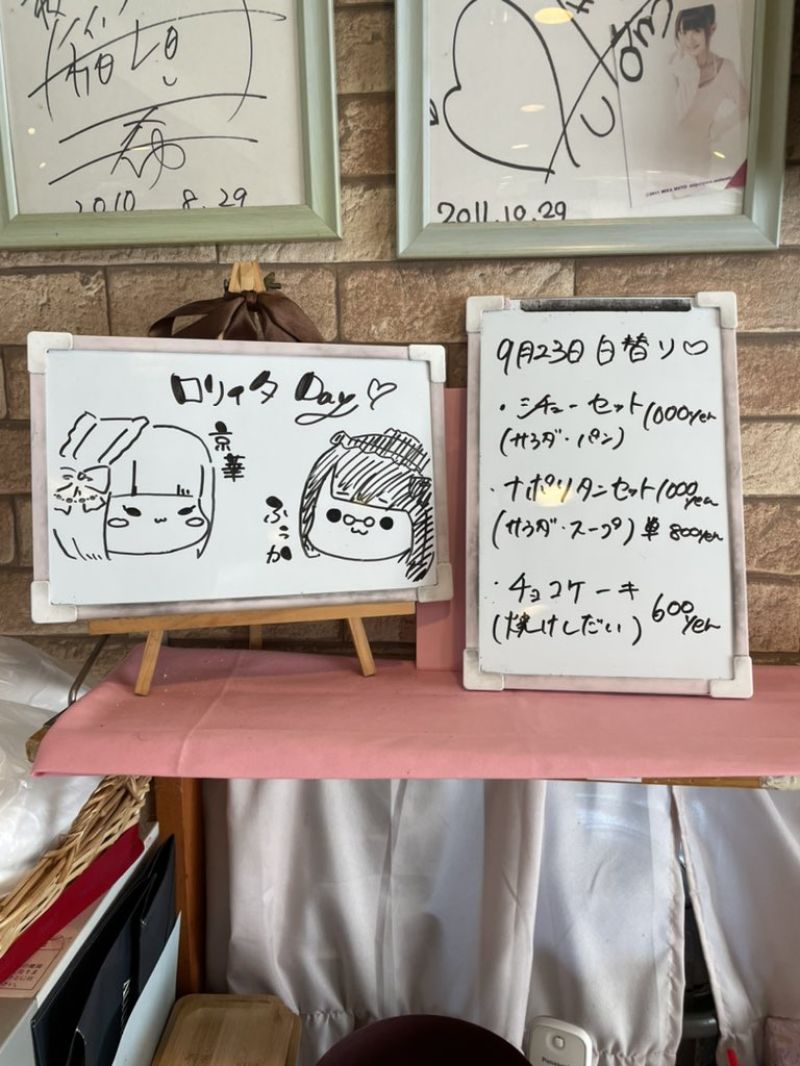 2010 8.29
2011.10.29
ロリィタ Day♡
京華
ふうか
9月23日 日替り♡
・シチューセット 1000yen
(サラダ・パン)
・ナポリタンセット 1000yen
(サラダ・スープ) 単 800yen
・チョコケーキ
(焼けしだい) 600yen
Panasonic